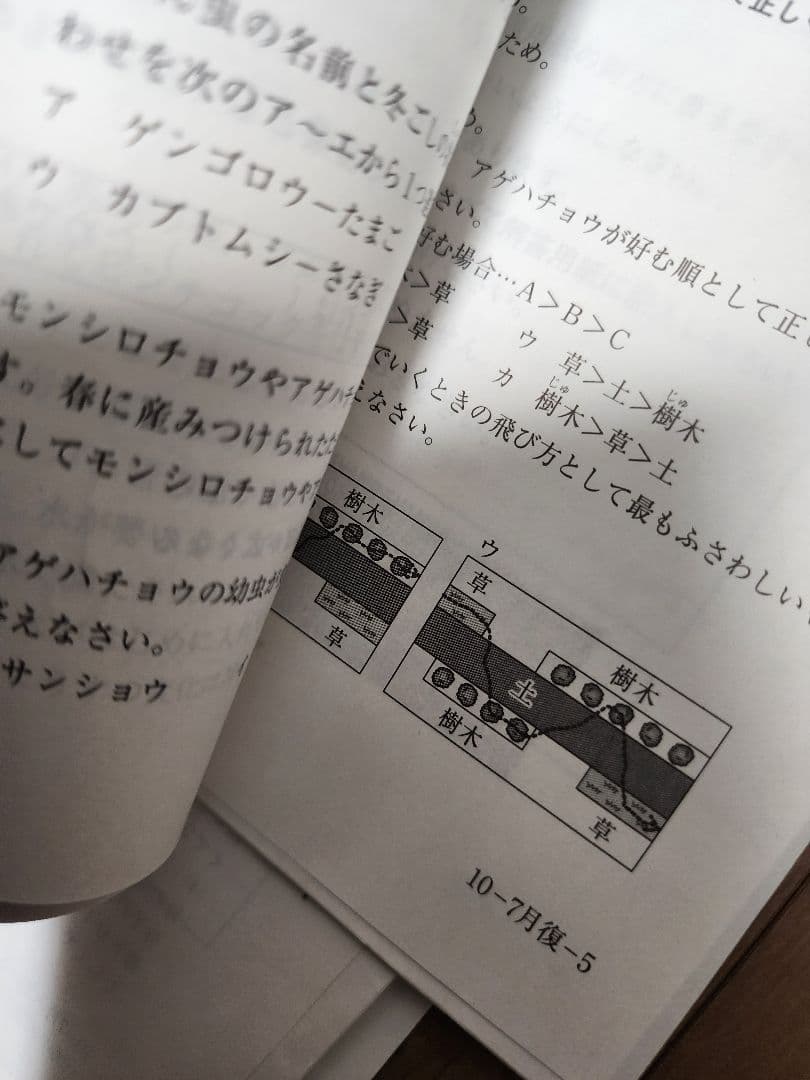 虫の名前と冬こしの
わせを次のア〜エから1つ
ア ゲンゴロウーたまご
ウ カブトムシーさなぎ
モンシロチョウやアゲハチ
す。春に産みつけられたた
してモンシロチョウやア
アゲハチョウの幼虫が
さえなさい。
サンショウ イ
ため。
さい。
アゲハチョウが好む順として正し
好む場合…A>B>C
木>草
ウ 草>土>樹木
じゅ
>草
カ 樹木>草>土
じゅ
でいくときの飛び方として最もふさわしい
えなさい。
樹木
草
ウ
草
土
樹木
樹木
草
10-7月復-5